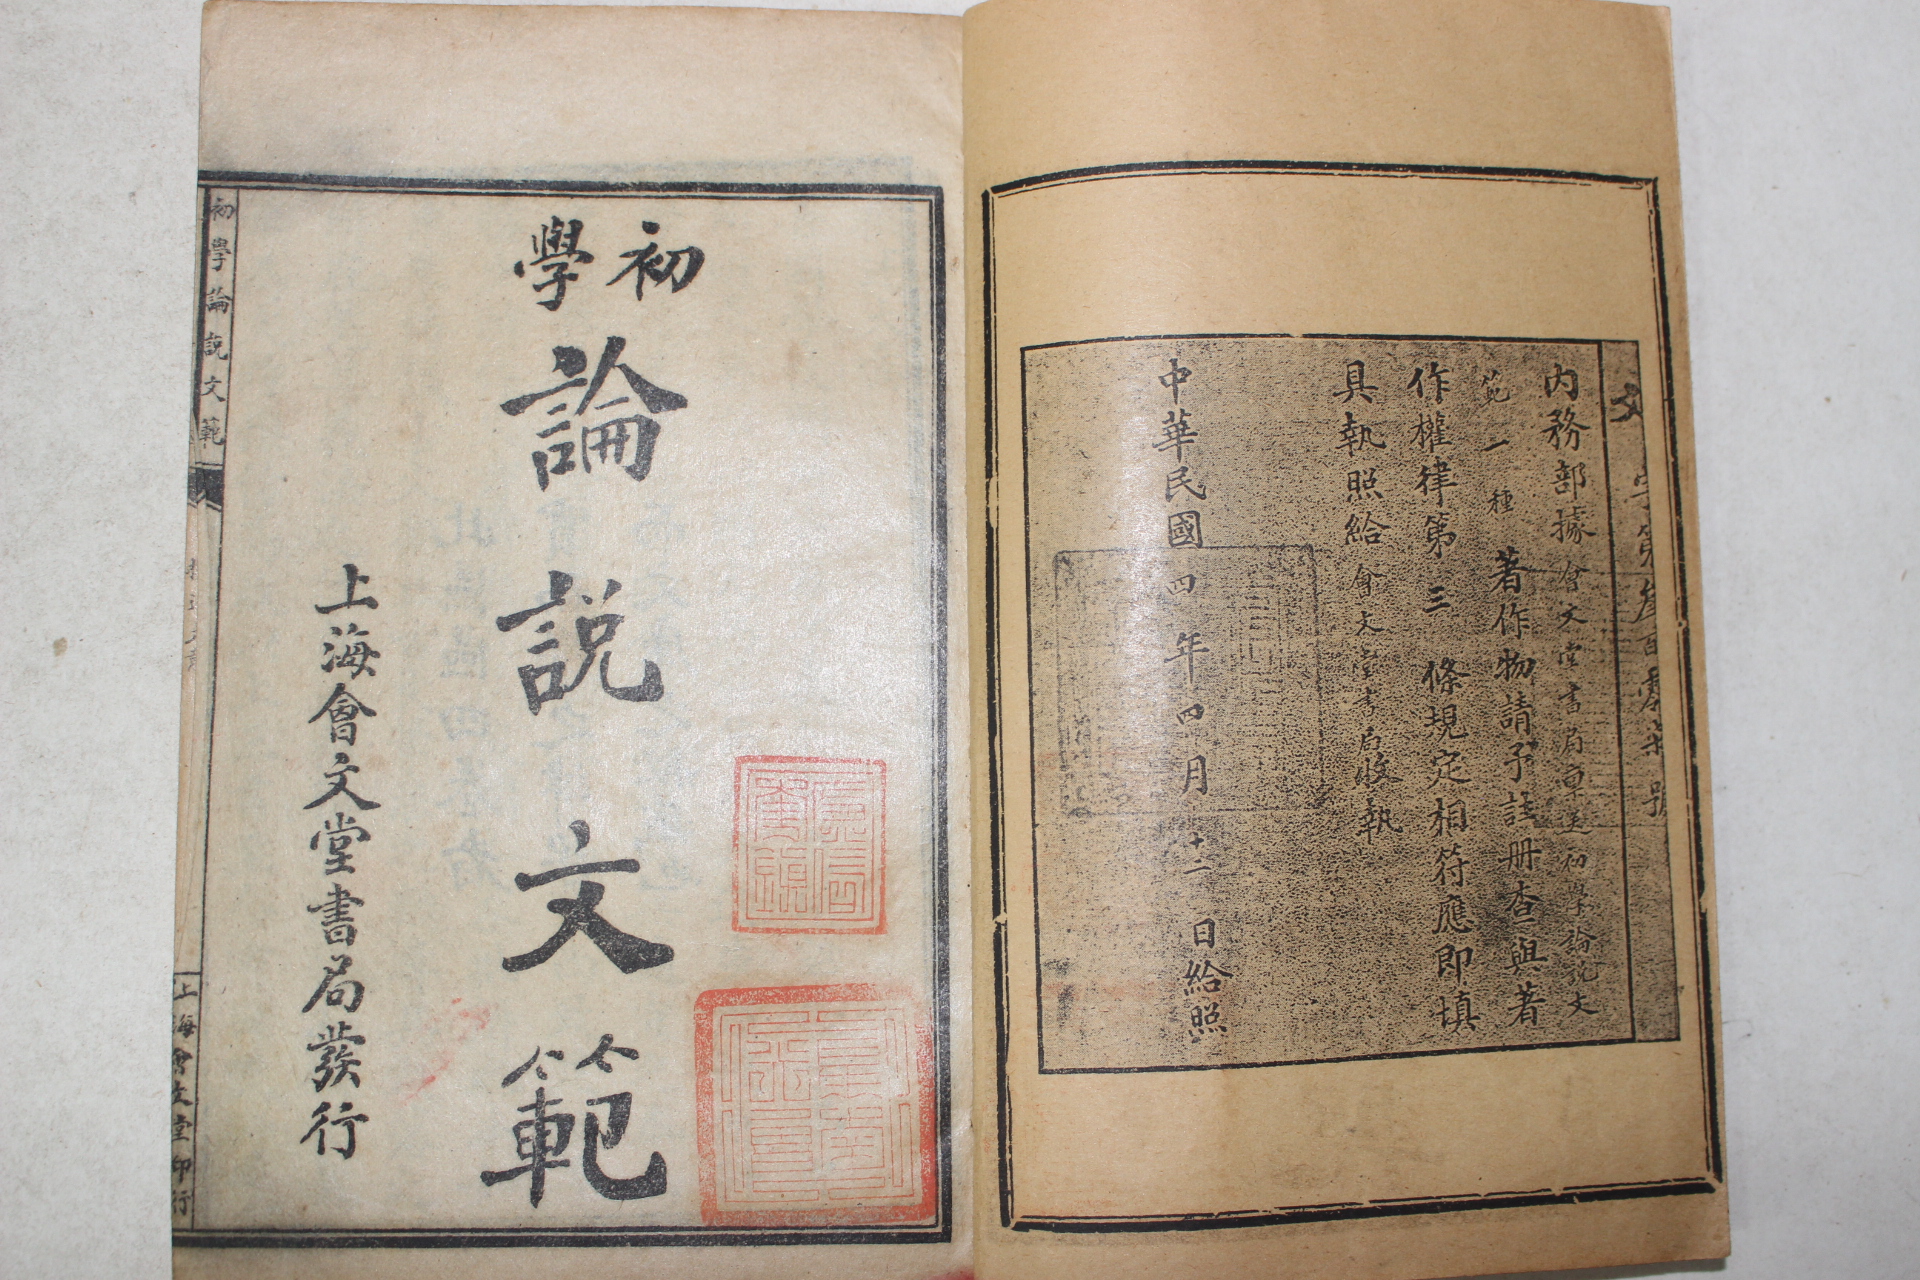 內務部據會文堂書局呈送初學論說文
範一種著作物請予註册查與著
作權律第三條規定相符應即填
具執照給會文堂書局收執
中華民國四年四月十二日給照
初學
論說文範
上海會文堂書局發行
初學論說文範
上海會文堂印行